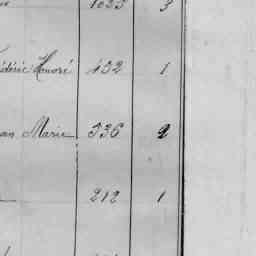 1025 3
édéric Honoré 432 1
an Marie 336 2
212 1